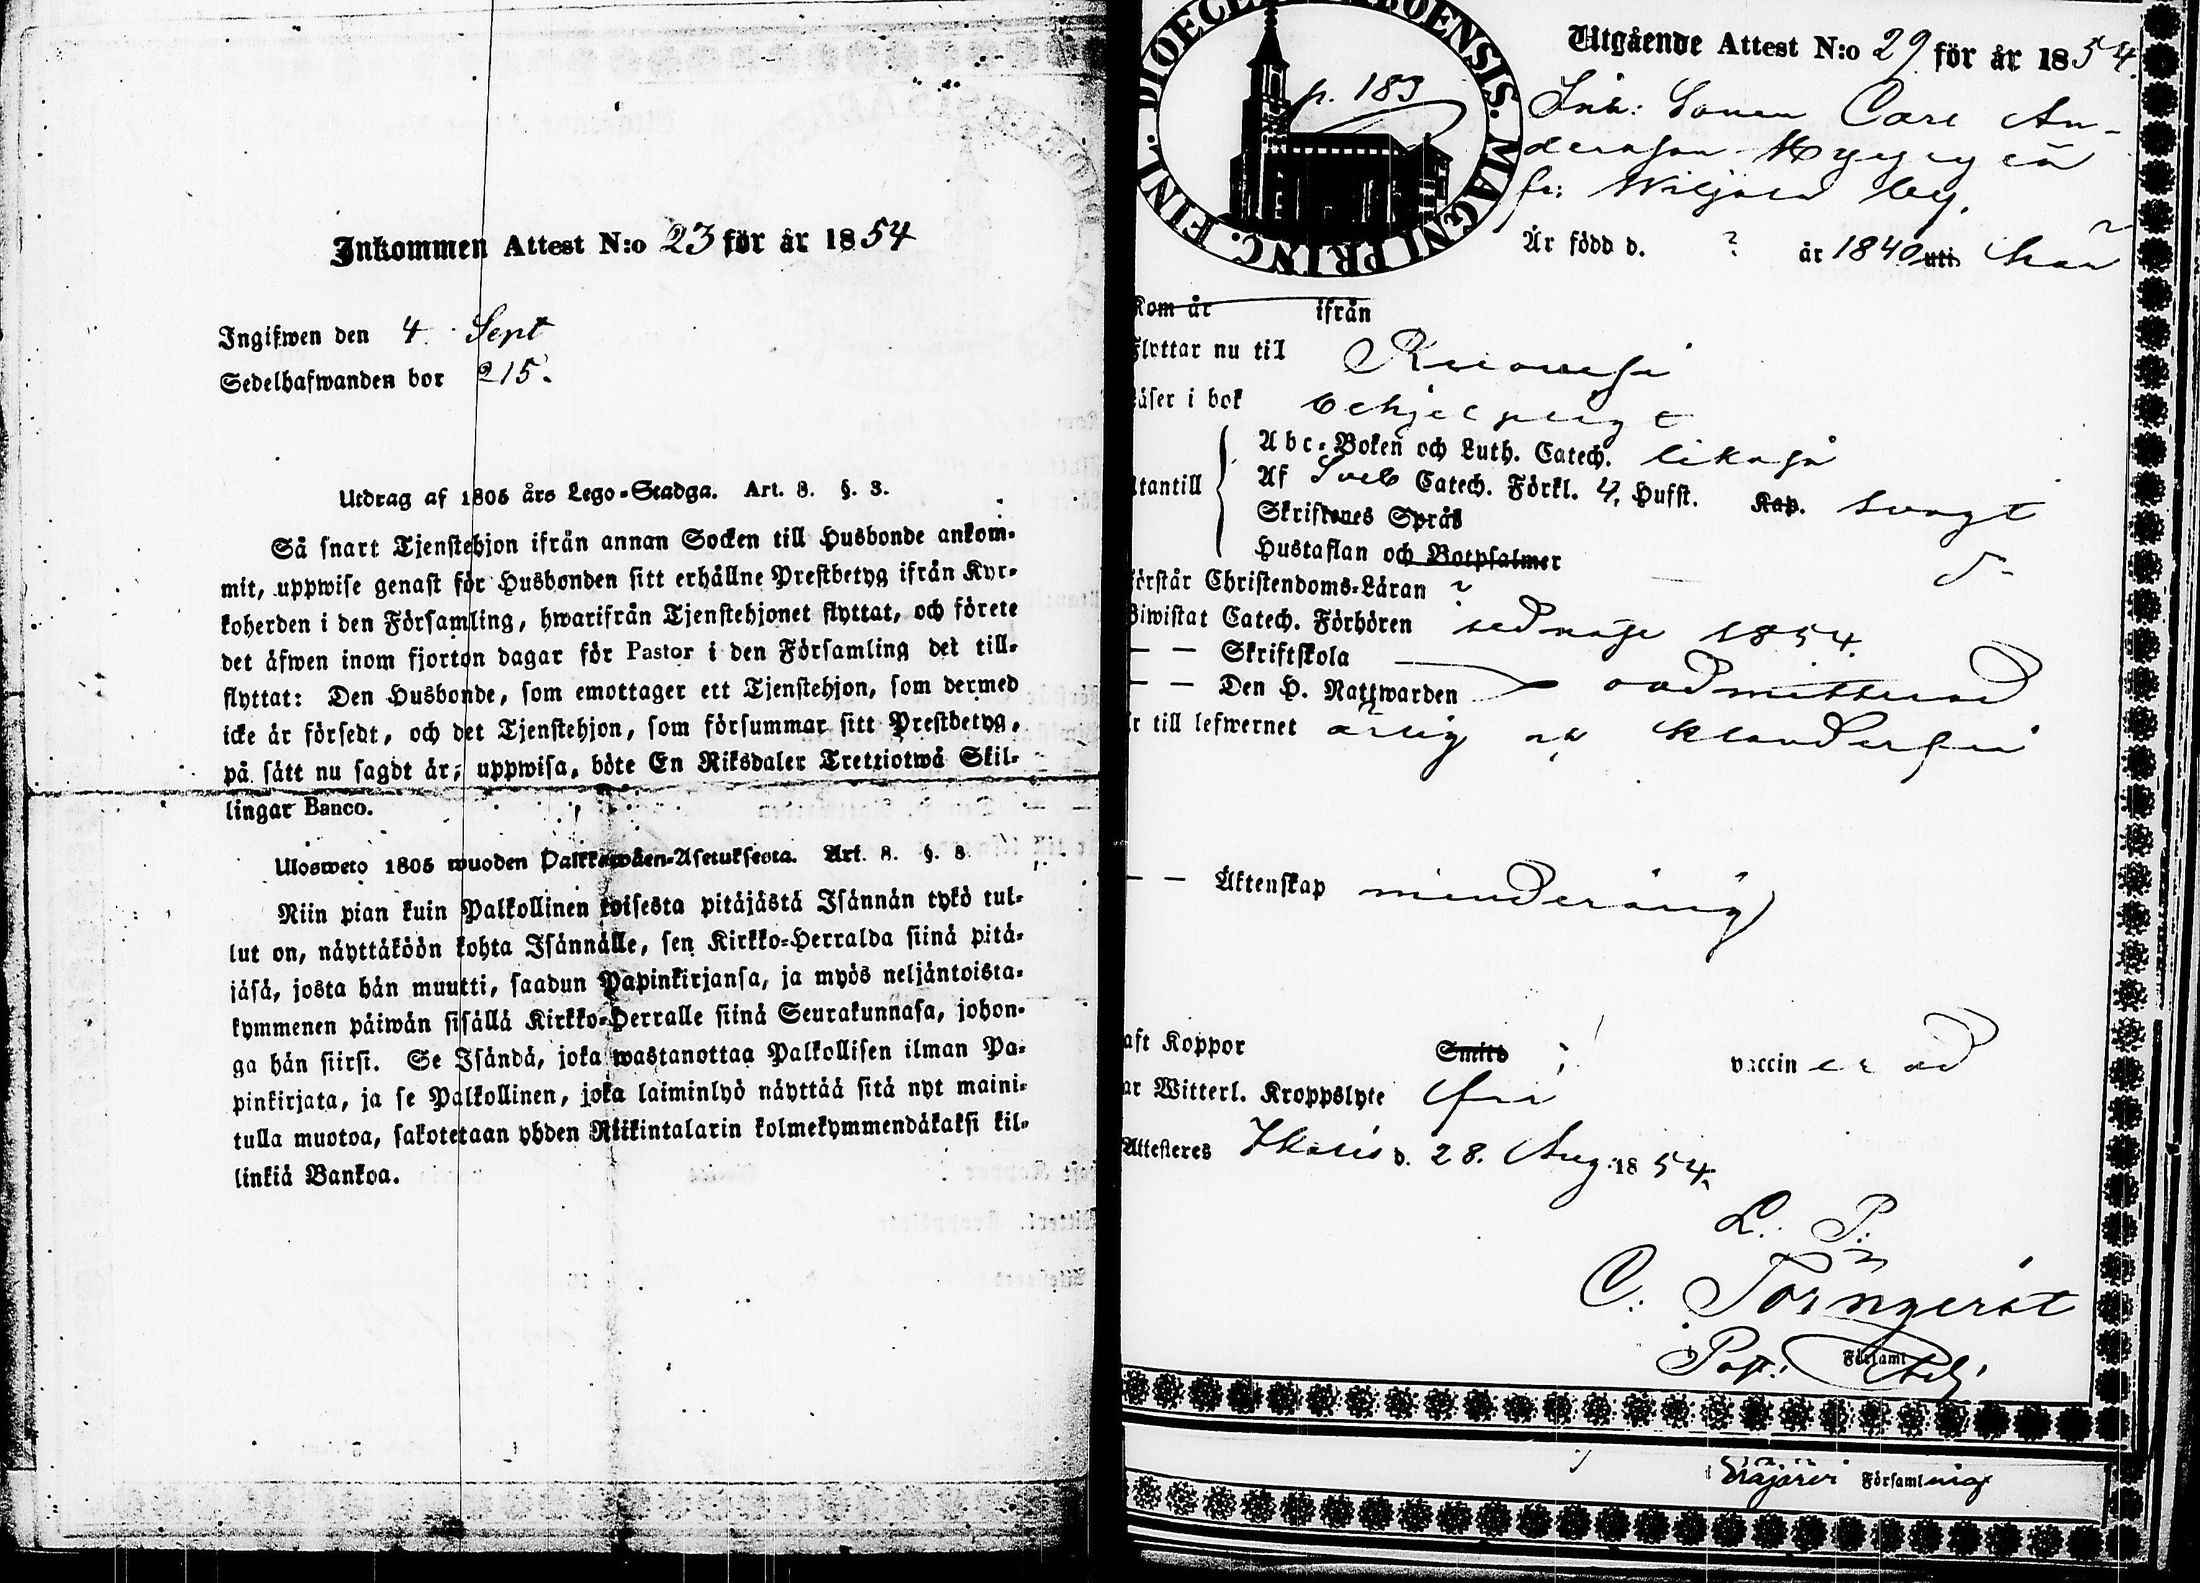 Inkommen Attest N:o 23 för år 1854
Ingifwen den 4 Sept
Sedelhafwanden bor 215.
Utdrag af 1805 års Lego-Stadga. Art. 8. §. 3.
Så snart Tjenstehjon ifrån annan Socken till Husbonde ankom-
mit, uppwise genast för Husbonden sitt erhållne Prestbetyg ifrån Kyr-
koherden i den Församling, hwarifrån Tjenstehjonet flyttat, och förete
det äfwen inom fjorton dagar för Pastor i den Församling det till-
flyttat: Den Husbonde, som emottager ett Tjenstehjon, som dermed
icke är försedt, och det Tjenstehjon, som försummar sitt Prestbetyg,
på sätt nu sagdt är, uppwisa, böte En Riksdaler Trettiotwå Skil-
lingar Banco.
Ulosweto 1805 wuoden Palkkawäen-Asetuksesta. Art. 8. §. 8.
Niin pian kuin Palkollinen toisesta pitäjästä Isännän tykö tul-
lut on, näyttäköön kohta Isännälle, sen Kirkko-Herralda siinä pitä-
jäsä, josta hän muutti, saadun Papinkirjansa, ja myös neljäntoista-
kymmenen päiwän sisällä Kirkko-Herralle siinä Seurakunnasa, johon-
ga hän siirsi. Se Isändä, joka wastanottaa Palkollisen ilman Pa-
pinkirjata, ja se Palkollinen, joka laiminlyö näyttää sitä nyt maini-
tulla muotoa, sakotetaan yhden Riikintalarin kolmekymmendäkaksi kil-
linkiä Bankoa.
FINL. DIOECES. ABOENSIS. MAGNI PRINC.
p. 183
Utgående Attest N:o 29 för år 1854.
Inh: Sonen Carl An-
dersson
by.
Är född d. ? år 1840 uti här
Kom år ifrån
Flyttar nu till
Läser i bok behjelpligt
Abc-Boken och Luth. Catech. likaså
Utantill Af Sveb Catech. Förkl. 4 Hufst. Kap. svagt
Skriftenes Språk
Hustaflan och Botpsalmer
Förstår Christendoms-Läran ?
Biwistat Catech. Förhören sednast 1854.
— — Skriftskola
— — Den H. Nattwarden oadmitterad
Är till lefwernet ärlig och klanderfri
— — Äktenskap minderårig
Haft Koppor Smitt vaccinerad
Har Witterl. Kroppslyte fri
Attesteres d. 28. Aug. 1854.
L. P.
C: Törnqvist
Past: Församl
Församling